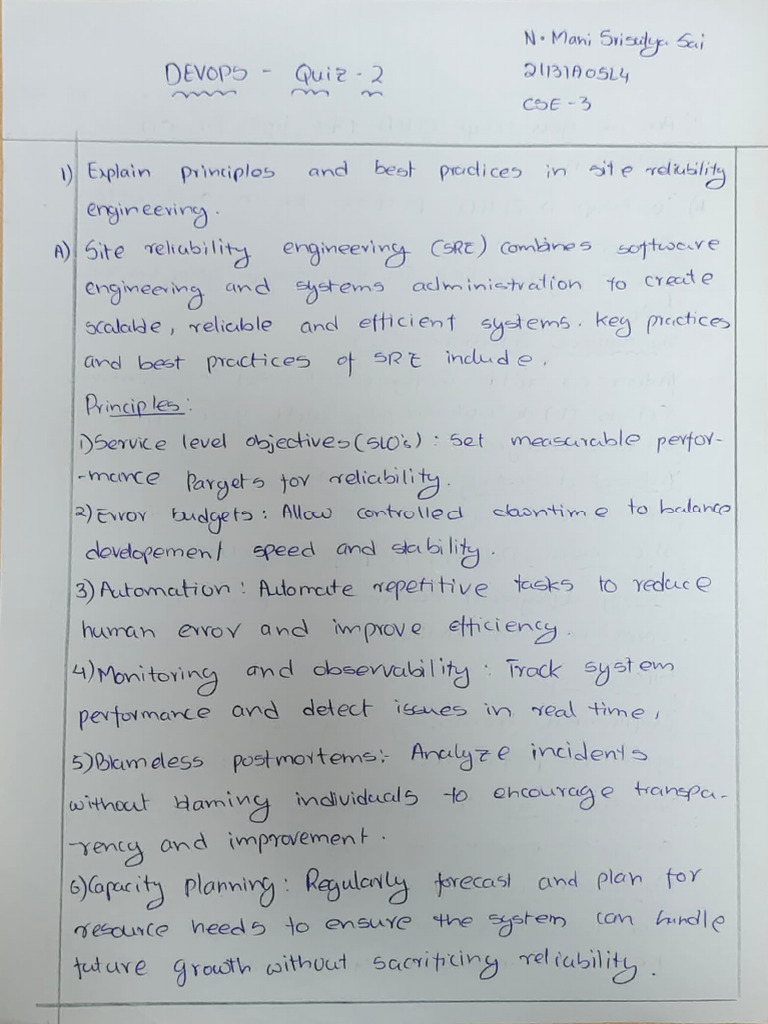 N. Mani Srisurya Sai
DEVOPS - Quiz - 2
21131A05L4
CSE - 3
1) Explain principles and best practices in site reliability
engineering.
A) Site reliability engineering (SRE) combines software
engineering and systems administration to create
scalable, reliable and efficient systems. Key practices
and best practices of SRE include.
Principles:
1) Service level objectives (SLO's) : Set measurable perfor-
-mance Pargets for reliability.
2) Error budgets : Allow controlled downtime to balance
developement speed and stability.
3) Automation : Automate repetitive tasks to reduce
human error and improve efficiency.
4) Monitoring and observability : Track system
performance and detect issues in real time,
5) Blameless postmortems:- Analyze incidents
without blaming individuals to encourage transpa-
-rency and improvement.
6) Capacity planning : Regularly forecast and plan for
resource needs to ensure the system can handle
future growth without sacrificing reliability.